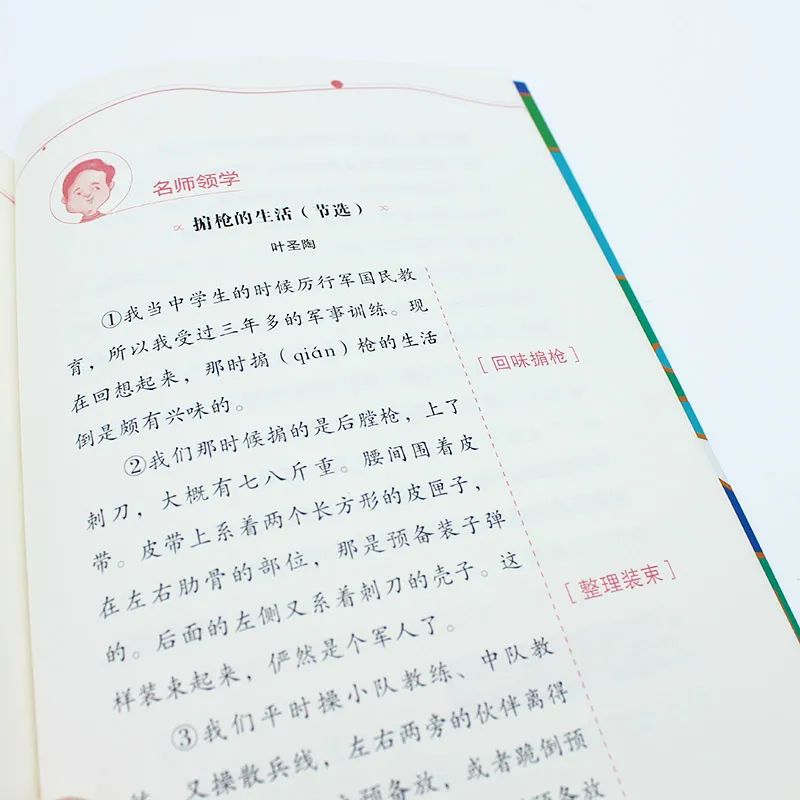 名师领学
掮枪的生活（节选）
叶圣陶
①我当中学生的时候厉行军国民教
育，所以我受过三年多的军事训练。现
在回想起来，那时掮（qián）枪的生活
倒是颇有兴味的。
[回味掮枪]
②我们那时候掮的是后膛枪，上了
刺刀，大概有七八斤重。腰间围着皮
带。皮带上系着两个长方形的皮匣子，
在左右肋骨的部位，那是预备装子弹
的。后面的左侧又系着刺刀的壳子。这
样装束起来，俨然是个军人了。
[整理装束]
③我们平时操小队教练、中队教
练，又操散兵线，左右两旁的伙伴离得
预备放，或者跪倒预
预备放